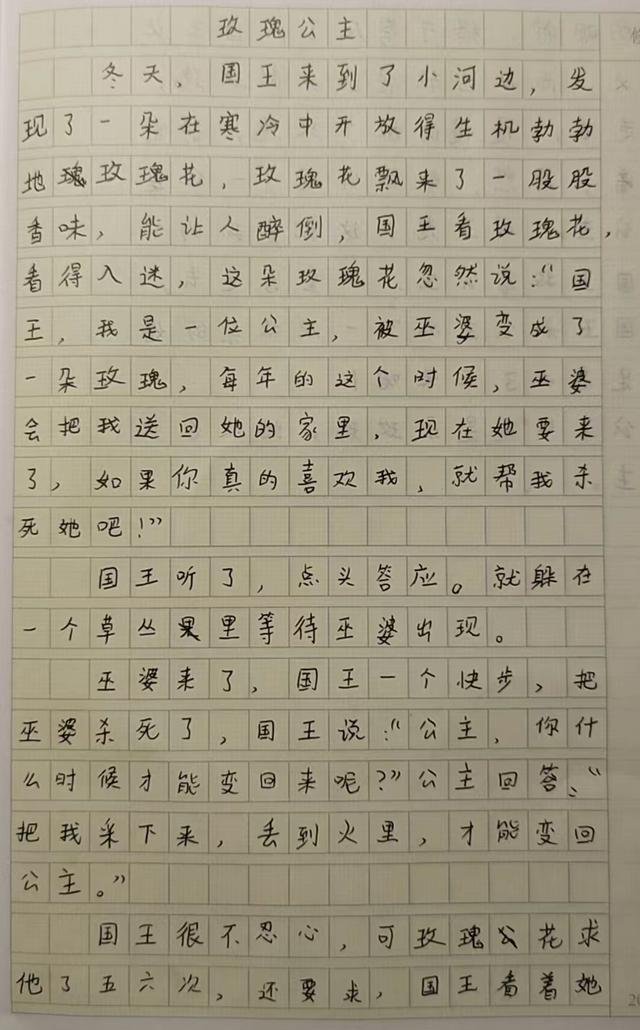 玫瑰公主
冬天，国王来到了小河边，发
现了一朵在寒冷中开放得生机勃勃
地瑰玫瑰花，玫瑰花飘来了一股股
香味，能让人醉倒，国王看玫瑰花，
看得入迷，这朵玫瑰花忽然说：“国
王，我是一位公主，被巫婆变成了
一朵玫瑰，每年的这个时候，巫婆
会把我送回她的家里，现在她要来
了，如果你真的喜欢我，就帮我杀
死她吧！”
国王听了，点头答应。就躲在
一个草丛里等待巫婆出现。
巫婆来了，国王一个快步，把
巫婆杀死了，国王说：“公主，你什
么时候才能变回来呢？”公主回答：“
把我采下来，丢到火里，才能变回
公主。”
国王很不忍心，可玫瑰花求
他了五六次，还要求，国王看着她